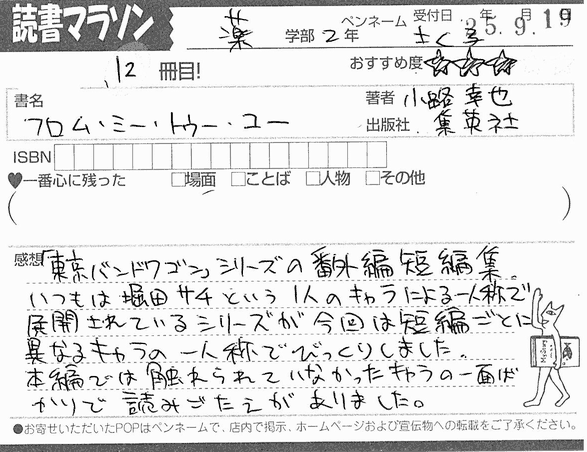 読書マラソン
薬 学部 2年 ペンネーム さく弓 受付日 年 月 日
25.9.19
12 冊目! おすすめ度☆☆☆
書名 著者 小路幸也
フロム・ミー・トゥー・ユー 出版社 集英社
ISBN
♥一番心に残った □場面 □ことば □人物 □その他
( )
感想 「東京バンドワゴン」シリーズの番外編短編集。
いつもは堀田サチという1人のキャラによる一人称で
展開されているシリーズが今回は短編ごとに
異なるキャラの一人称でびっくりしました。
本編では触れられていなかったキャラの一面ば
かりで読みごたえがありました。
●お寄せいただいたPOPはペンネームで、店内で掲示、ホームページおよび宣伝物への転載をご了承ください。